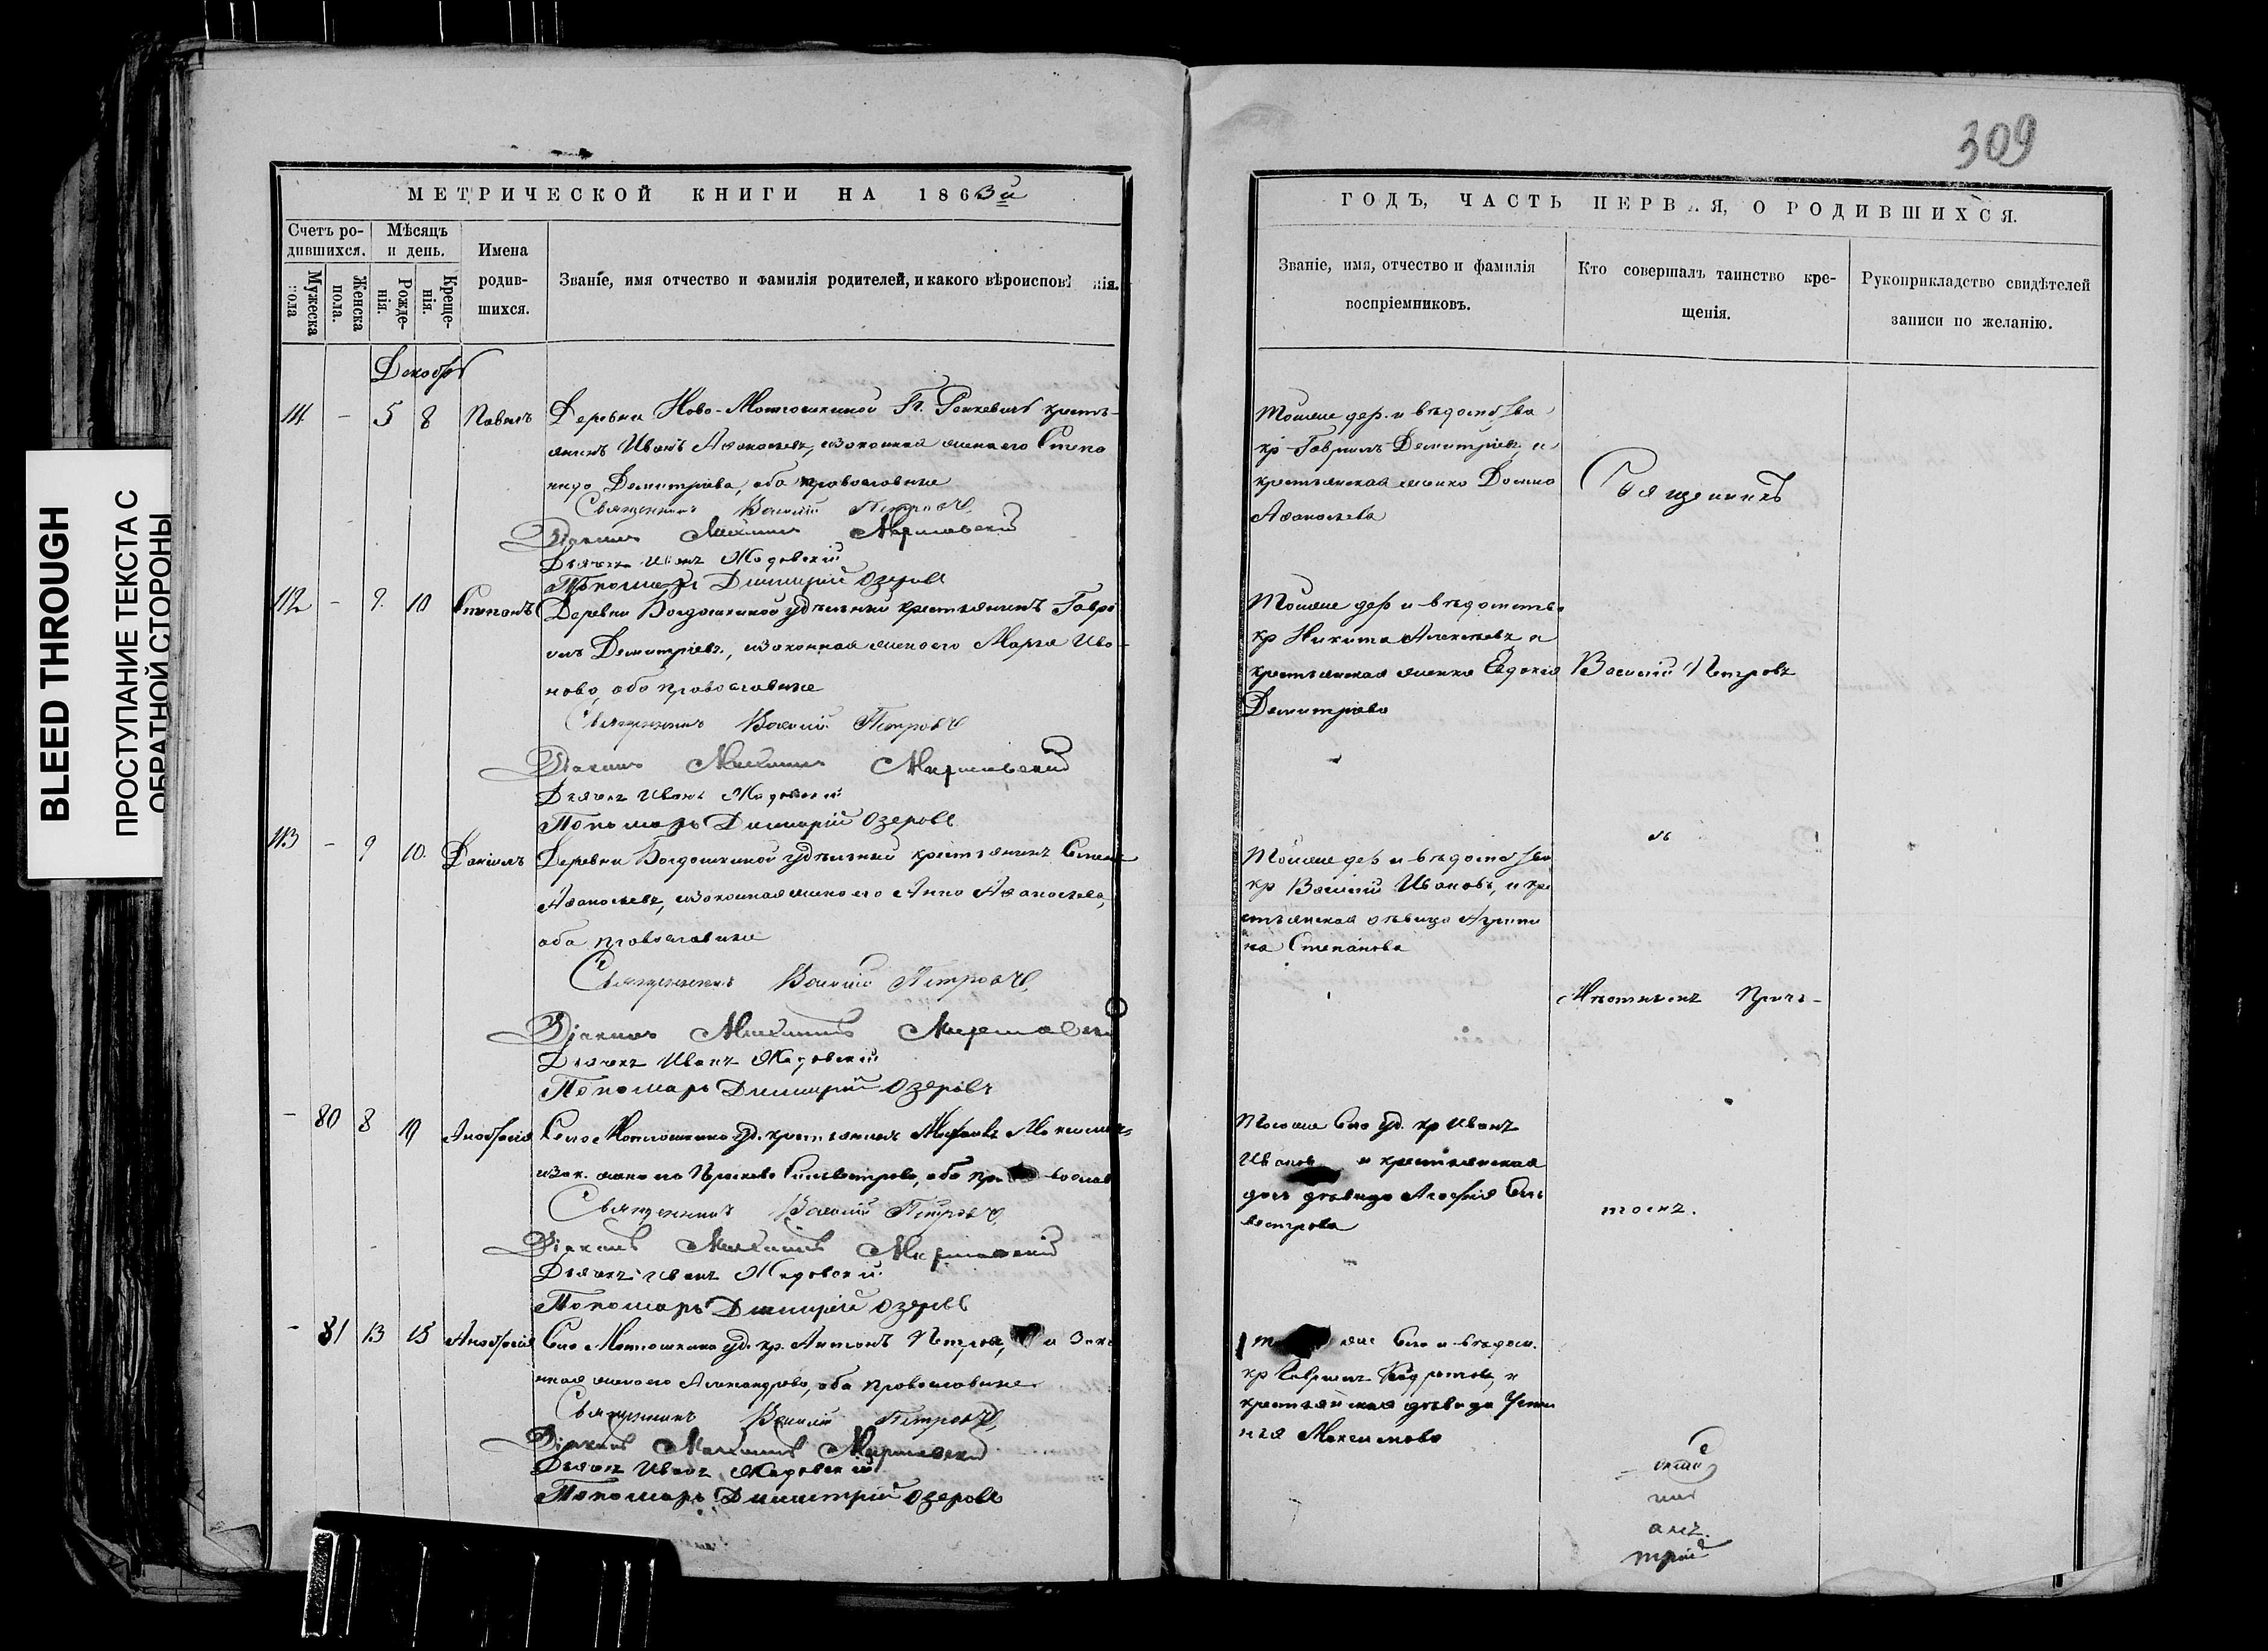 309
МЕТРИЧЕСКОЙ КНИГИ НА 1863й
ГОДЪ, ЧАСТЬ ПЕРВАЯ, О РОДИВШИХСЯ.
Счетъ родившихся.
Мужеска пола
Женска пола.
Мѣсяцъ и день.
Рожденія.
Крещенія.
Имена родившихся.
Званіе, имя отчество и фамилія родителей, и какого вѣроисповѣ нія.
Званіе, имя, отчество и фамилія воспріемниковъ.
Кто совершалъ таинство крещенія.
Рукоприкладство свидѣтелей записи по желанію.
Декабрь
111 - 5 8 Павелъ Деревни Ново- крестьянинъ
Иванъ Аѳанасьевъ, и законная жена его Степанида
Димитріева, оба православные
Священникъ Василій Петровъ
Діаконъ Михаилъ
Дьячекъ Иванъ Жадовскій
Пономарь Димитрій Озеровъ
Тойже дер. и вѣдомства
кр Гавріилъ Димитріевъ, и
крестьянская женка Домна
Аѳанасьева
Священникъ
112 - 9. 10 Степанъ Деревни Богдашкиной удѣльный крестьянинъ Гаврі
илъ Димитріевъ, и законная жена его Марѳа Ива-
нова, оба православные
Священникъ Василій Петровъ
Діаконъ Михаилъ
Дьячекъ Иванъ Жадовскій
Пономарь Димитрій Озеровъ
Тойже дер и вѣдомства
кр Никита Алексѣевъ и
крестьянская женка Евдокія
Димитріева
Василій Петровъ
113 - 9 10. Даніилъ Деревни Богдашкиной удѣльный крестьянинъ
Аѳанасьевъ, и законная жена его Анна Аѳанасьева,
оба православные
Священникъ Василій Петровъ
Діаконъ Михаилъ
Дьячекъ Иванъ Жадовскій
Пономарь Димитрій Озеровъ
Тойже дер и вѣдомства
кр Василій Ивановъ, и кре
стьянская дѣвица Агрипи
на Степанова
съ
Мѣстнымъ Прич-
- 80 8 Село уд. крестьянинъ
и зак. жена его Сильвестрова, оба пра вослав
Священникъ Василій Петровъ
Діаконъ Михаилъ
Дьячекъ Иванъ Жадовскій
Пономарь Димитрій Озеровъ
Тогоже Села уд. кр Иванъ
Иванов и крестьянская
дѣвица Силь
вестрова
томъ.
- 81 13 15 Село уд. кр. Антонъ и Зако
нная жена его Александрова, оба православные
Священникъ Василій Петровъ
Діаконъ Михаилъ
Дьячекъ Иванъ Жадовскій
Пономарь Димитрій Озеровъ
Села и вѣдом.
кр Гавріилъ и
крестьянская дѣвица Усти
нія Максимова
анъ.
трій
BLEED THROUGH
ПРОСТУПАНИЕ ТЕКСТА С
ОБРАТНОЙ СТОРОНЫ